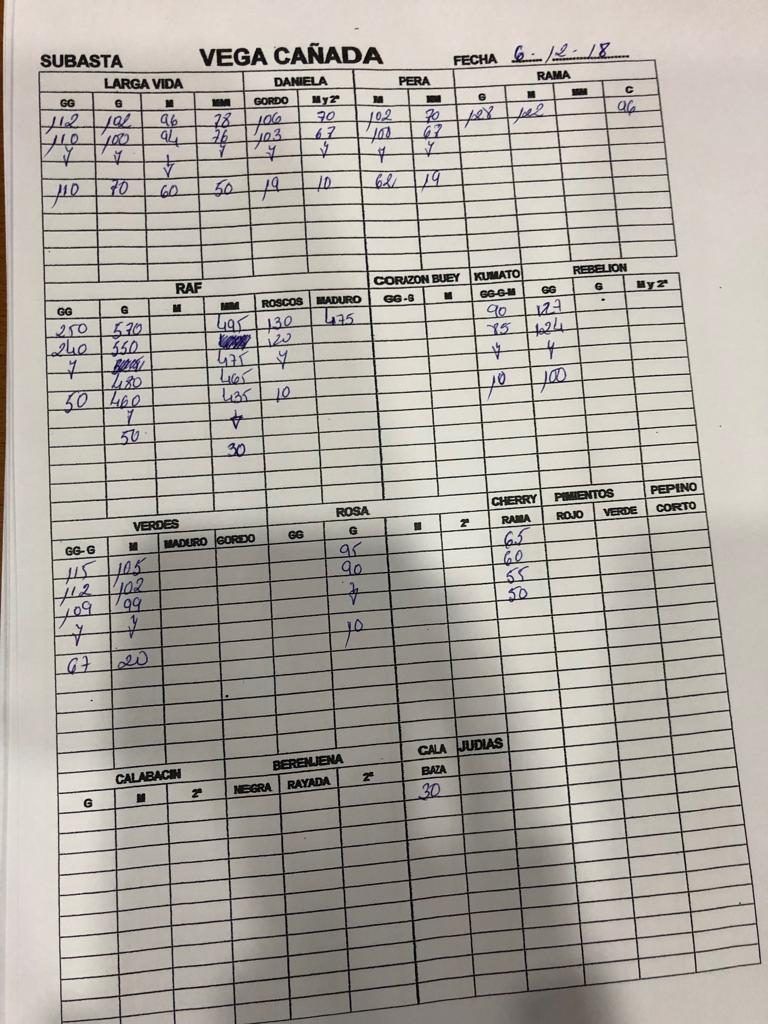 SUBASTA VEGA CAÑADA FECHA 6-12-18
LARGA VIDA DANIELA PERA RAMA
GG G M MM GORDO M y 2ª M MM G M MM C
112 102 96 78 106 70 102 70 128 122 96
110 100 94 76 103 67 100 67
110 70 60 50 19 10 62 19
RAF CORAZON BUEY KUMATO REBELION
GG G M MM ROSCOS MADURO GG -G M GG-G-M GG G M y 2ª
250 570 495 130 475 90 127
240 550 120 85 124
475
480 465 10 100
50 460 435 10
50
30
VERDES ROSA CHERRY PIMIENTOS PEPINO
GG- G M MADURO GORDO GG G M 2ª RAMA ROJO VERDE CORTO
115 105 95 65
112 102 90 60
109 99 55
50
67 20 10
CALABACIN BERENJENA CALA JUDIAS
G M 2ª NEGRA RAYADA 2ª BAZA
30